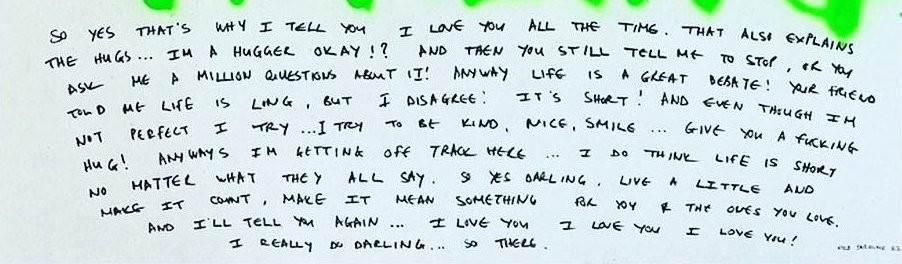 SO YES THAT'S WHY I TELL YOU I LOVE YOU ALL THE TIME. THAT ALSO EXPLAINS
THE HUGS... IM A HUGGER OKAY!? AND THEN YOU STILL TELL ME TO STOP, OR YOU
ASK ME A MILLION QUESTIONS ABOUT IT! ANYWAY LIFE IS A GREAT DEBATE! YOUR FRIEND
TOLD ME LIFE IS LONG, BUT I DISAGREE! IT'S SHORT! AND EVEN THOUGH IM
NOT PERFECT I TRY... I TRY TO BE KIND, NICE, SMILE... GIVE YOU A FUCKING
HUG! ANYWAYS IM GETTING OFF TRACK HERE... I DO THINK LIFE IS SHORT
NO MATTER WHAT THEY ALL SAY. SO YES DARLING, LIVE A LITTLE AND
MAKE IT COUNT, MAKE IT MEAN SOMETHING FOR YOU & THE ONES YOU LOVE.
AND I'LL TELL YOU AGAIN... I LOVE YOU I LOVE YOU I LOVE YOU!
I REALLY DO DARLING... SO THERE.